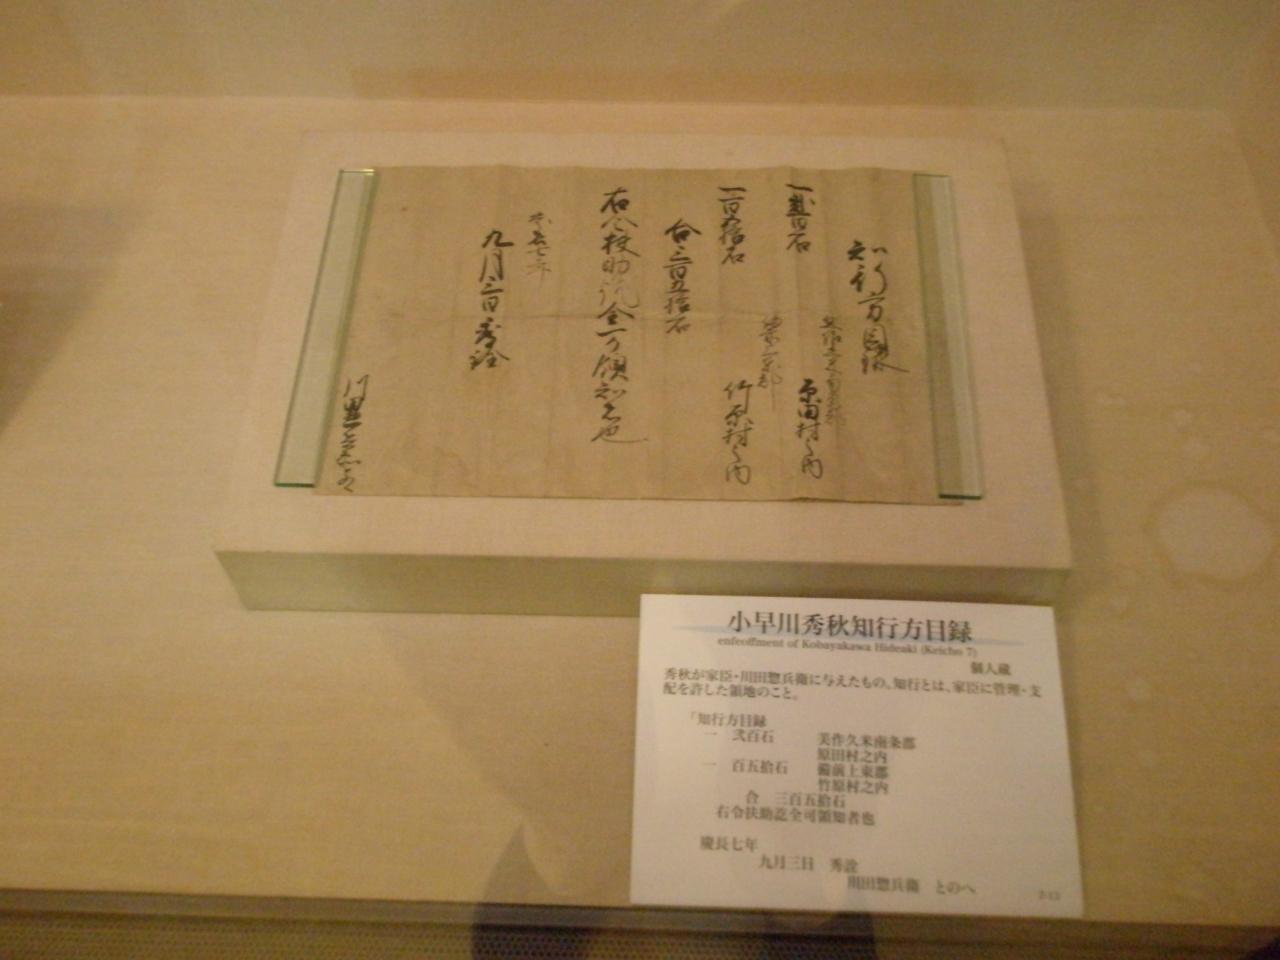 知行方目録
一 弐百石
美作久米南条郡
原田村之内
一 百五拾石
備前上東郡
竹原村之内
合 三百五拾石
右令扶助訖全可領知者也
慶長七年
九月三日 秀詮
川田惣兵衛とのへ
小早川秀秋知行方目録
enfeoffment of Kobayakawa Hideaki (Keicho 7)
個人蔵
秀秋が家臣・川田惣兵衛に与えたもの。知行とは、家臣に管理・支
配を許した領地のこと。
「知行方目録
一 弐百石 美作久米南条郡
原田村之内
一 百五拾石 備前上東郡
竹原村之内
合 三百五拾石
右令扶助訖全可領知者也
慶長七年
九月三日 秀詮
川田惣兵衛 とのへ
2-13